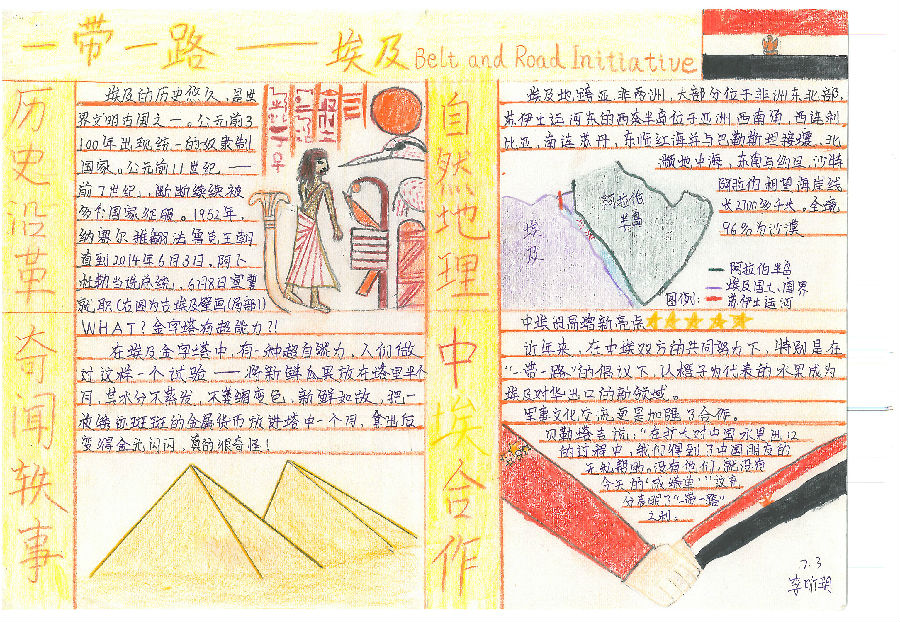 一带一路——埃及 Belt and Road Initiative
历史沿革
埃及的历史悠久,是世
界文明古国之一。公元前3
100年出现统一的奴隶制
国家。公元前11世纪——
前7世纪,断断续续被
多个国家征服。1952年,
纳赛尔推翻法鲁克王朝
直到2014年6月3日,阿卜
杜勒当选总统,6月8日宣誓
就职(右图为古埃及壁画(局部))
奇闻轶事
WHAT?金字塔有超能力?!
在埃及金字塔中,有一种超自然力,人们做
过这样一个试验——将新鲜瓜果放在塔里半个
月,其水分不蒸发,不萎缩变色,新鲜如故,把一
枚锈迹斑斑的金属货币放进塔中一个月,拿出后
变得金光闪闪,真的很奇怪!
自然地理
埃及地跨亚、非两洲,大部分位于非洲东北部,
苏伊士运河东的西奈半岛位于亚洲西南角,西连利
比亚,南连苏丹,东临红海并与巴勒斯坦接壤,北
濒地中海,东南与约旦、沙特
阿拉伯相望,海岸线
长2700多千米。全境
96%为沙漠
阿拉伯
半岛
埃及
图例:
阿拉伯半岛
埃及国土、国界
苏伊士运河
中埃合作
中埃贸易增新亮点
近年来,在中埃双方的共同努力下,特别是在
“一带一路”的倡议下,以橙子为代表的水果成为
埃及对华出口的新领域。
更是加强了合作。
贝勒塔吉说:“在扩大对中国水果出口
的过程中,我们得到了中国朋友的
无私帮助。没有他们,就没有
今天的‘成绩单’”这充
分表明了“一带一路”
之利。
7.3